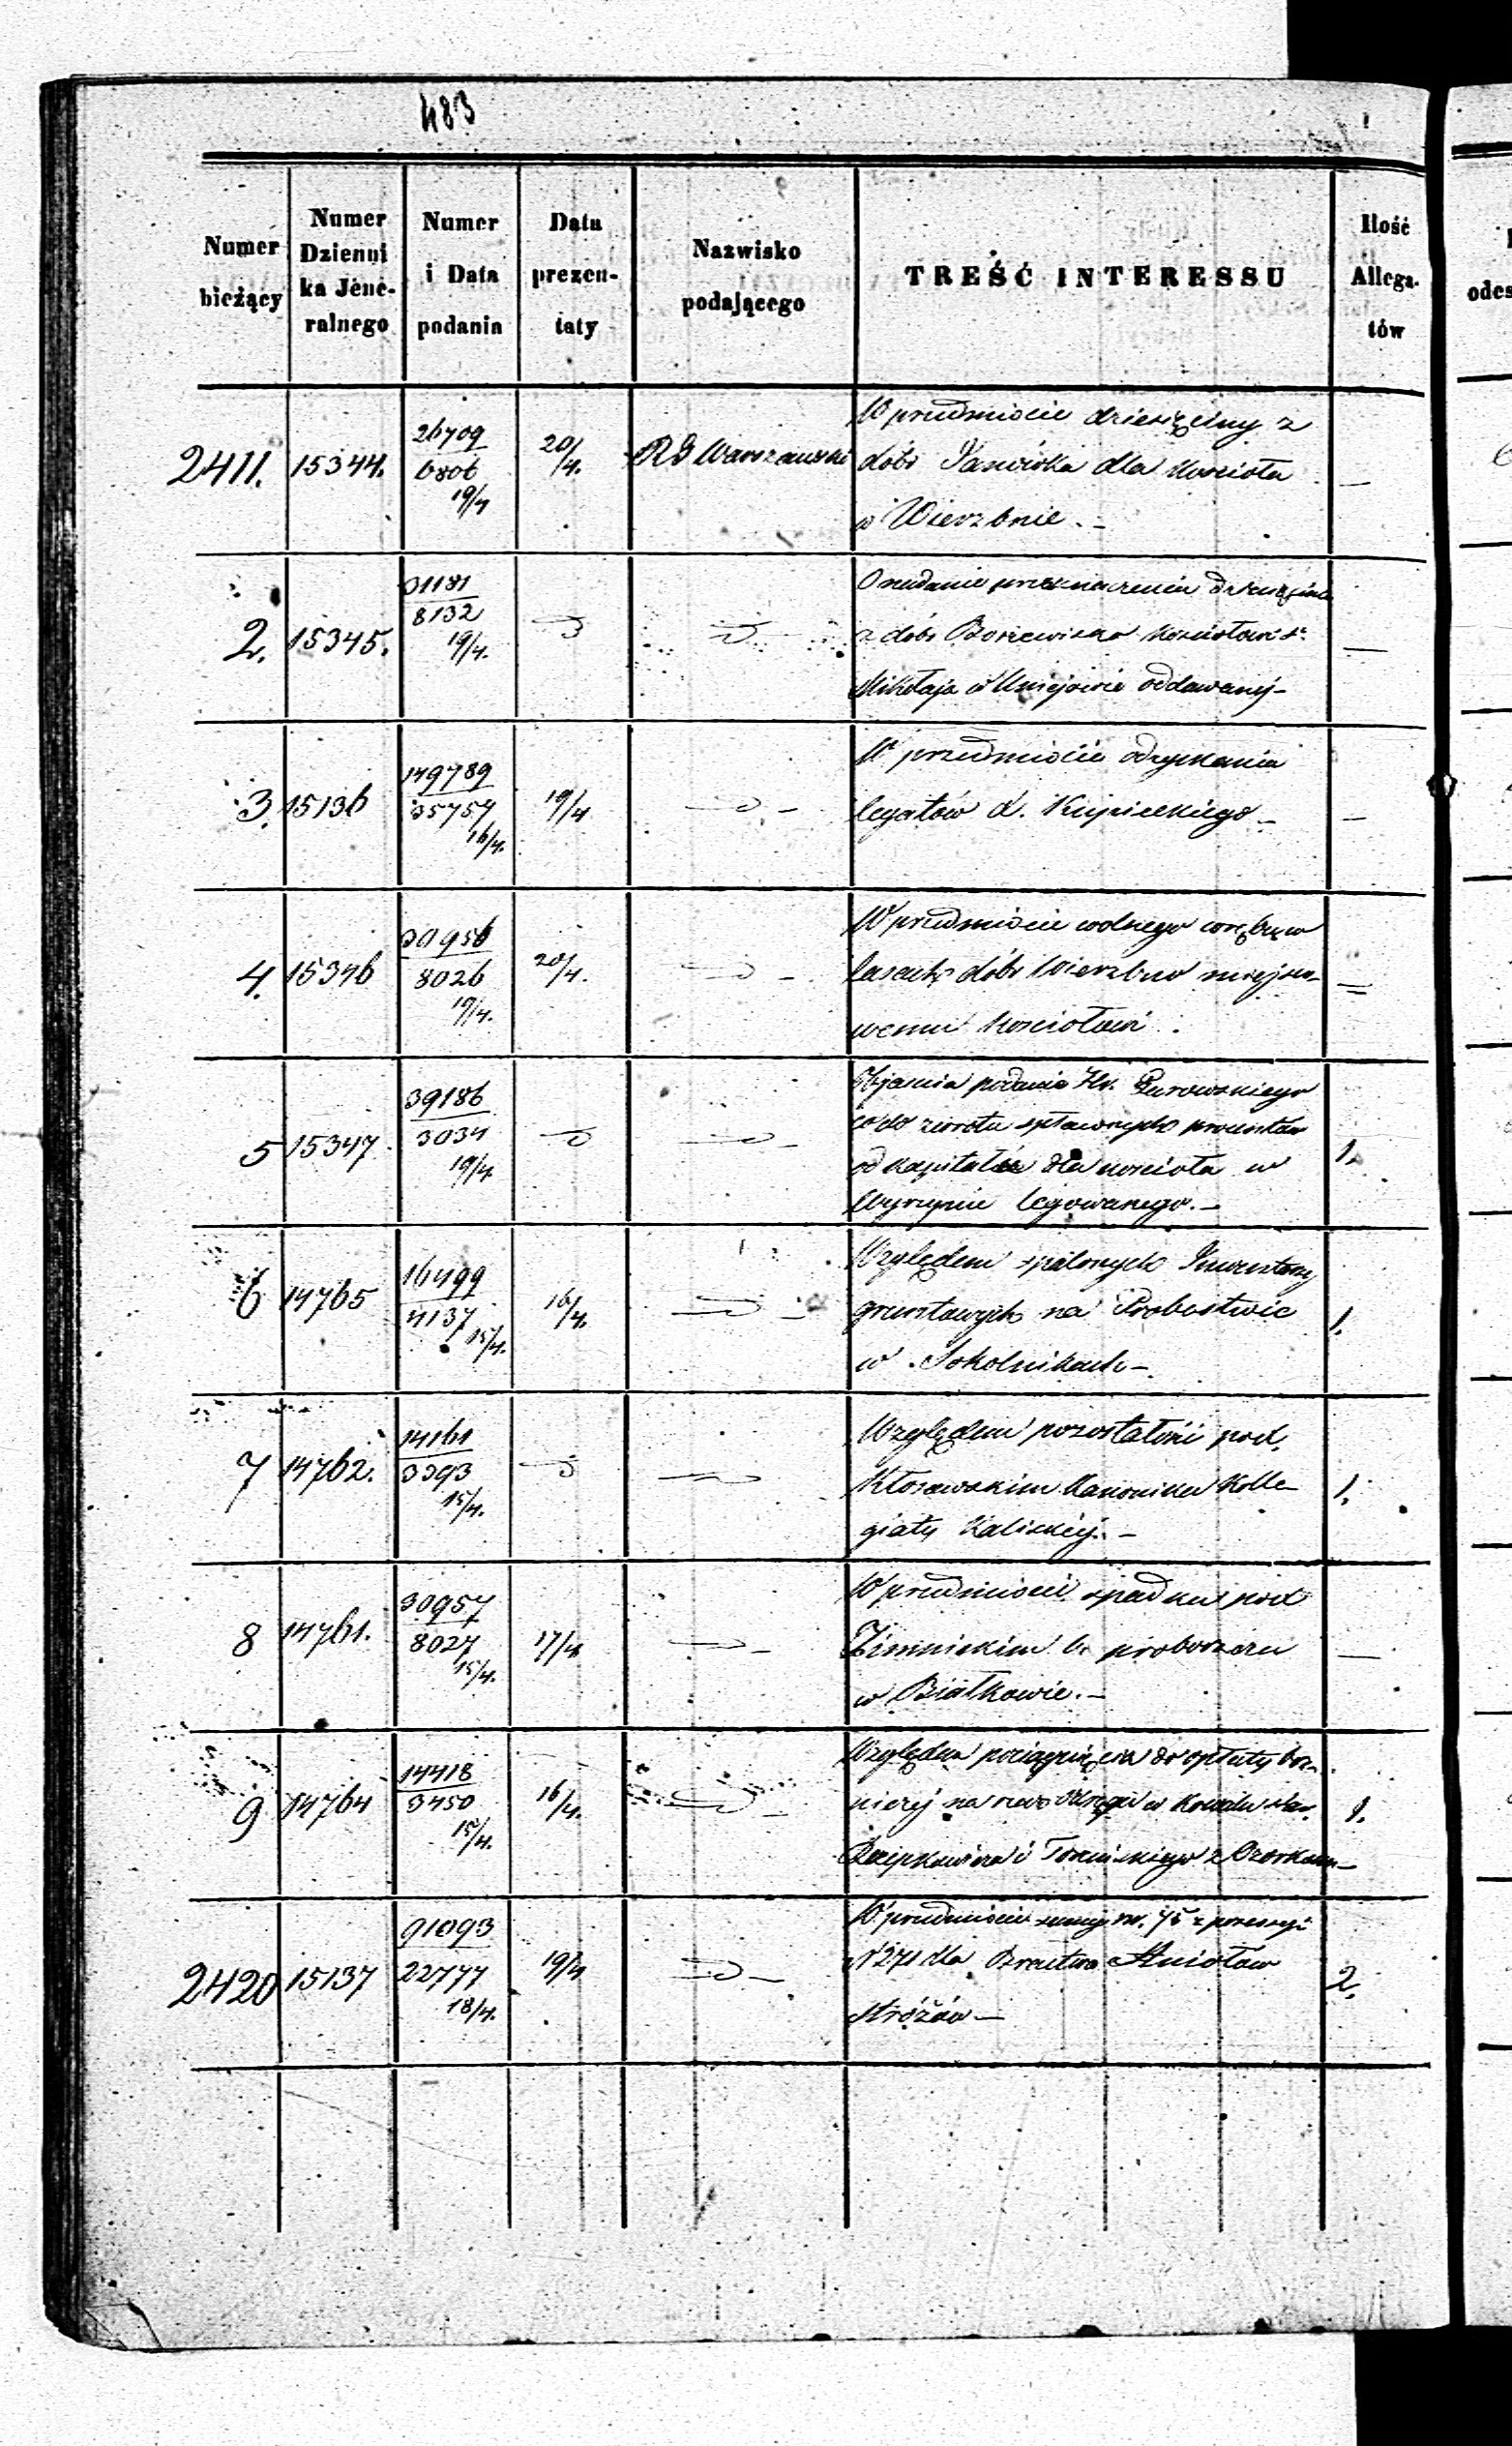 483
Numer bieżący
Numer Dzienni ka Jene- ralnego
Numer i Data podania
Data prezen- taty
Nazwisko podającego
TREŚĆ INTERESSU
Ilość Allega- tów
2411. 15344. 26709 / 6806 19/4 20/4. RG Warszawski
W przedmiocie dziesięciny z
dóbr dla Kościoła —
w Wierzbnie. –
2. 15345. 31181 / 8132 19/4.
z dóbr Kościołowi St
Mikołaja w Uniejowie oddawanej –
3. 15136 149789 / 35757 16/4. 19/4
W przedmiocie odzyskania
legatów –
4. 15346 30956 / 8026 19/4. 20/4.
W przedmiocie wolnego wrębu w
lasach dóbr Wierzbno miejsco-
wemu Kościołowi.
5 15347 39186 / 3034 19/4.
Objaśnia podanie Hr.
co do zwrotu procentów
od kapitału dla kościoła w 1.
legowanego. –
6 14765 16499 / 4137 15/4. 16/4.
Względem spalonych Inwentarzy
gruntowych na Probostwie 1.
w Sokolnikach –
7 14762. 14161 / 3393 15/4.
Względem pozostałości po ś.
Kłosowskim Kanoniku Kolle- 1.
giaty Kaliskiej. –
8 14761. 30957 / 8027 15/4. 17/4
W przedmiocie spadku po ś
Zimnickim b. proboszczu —
w Białkowie. –
9 14764 14418 / 3450 15/4. 16/4.
Względem pociągnięcia do opłaty boż-
niczej na rzecz Okręgu w 1.
i z Ozorkowa –
2420 15137 91093 / 22777 18/4. 19/4
W przedmiocie summy rs. 75 z possessyi
N 271 dla Bractwa Aniołów 2.
Stróżów –